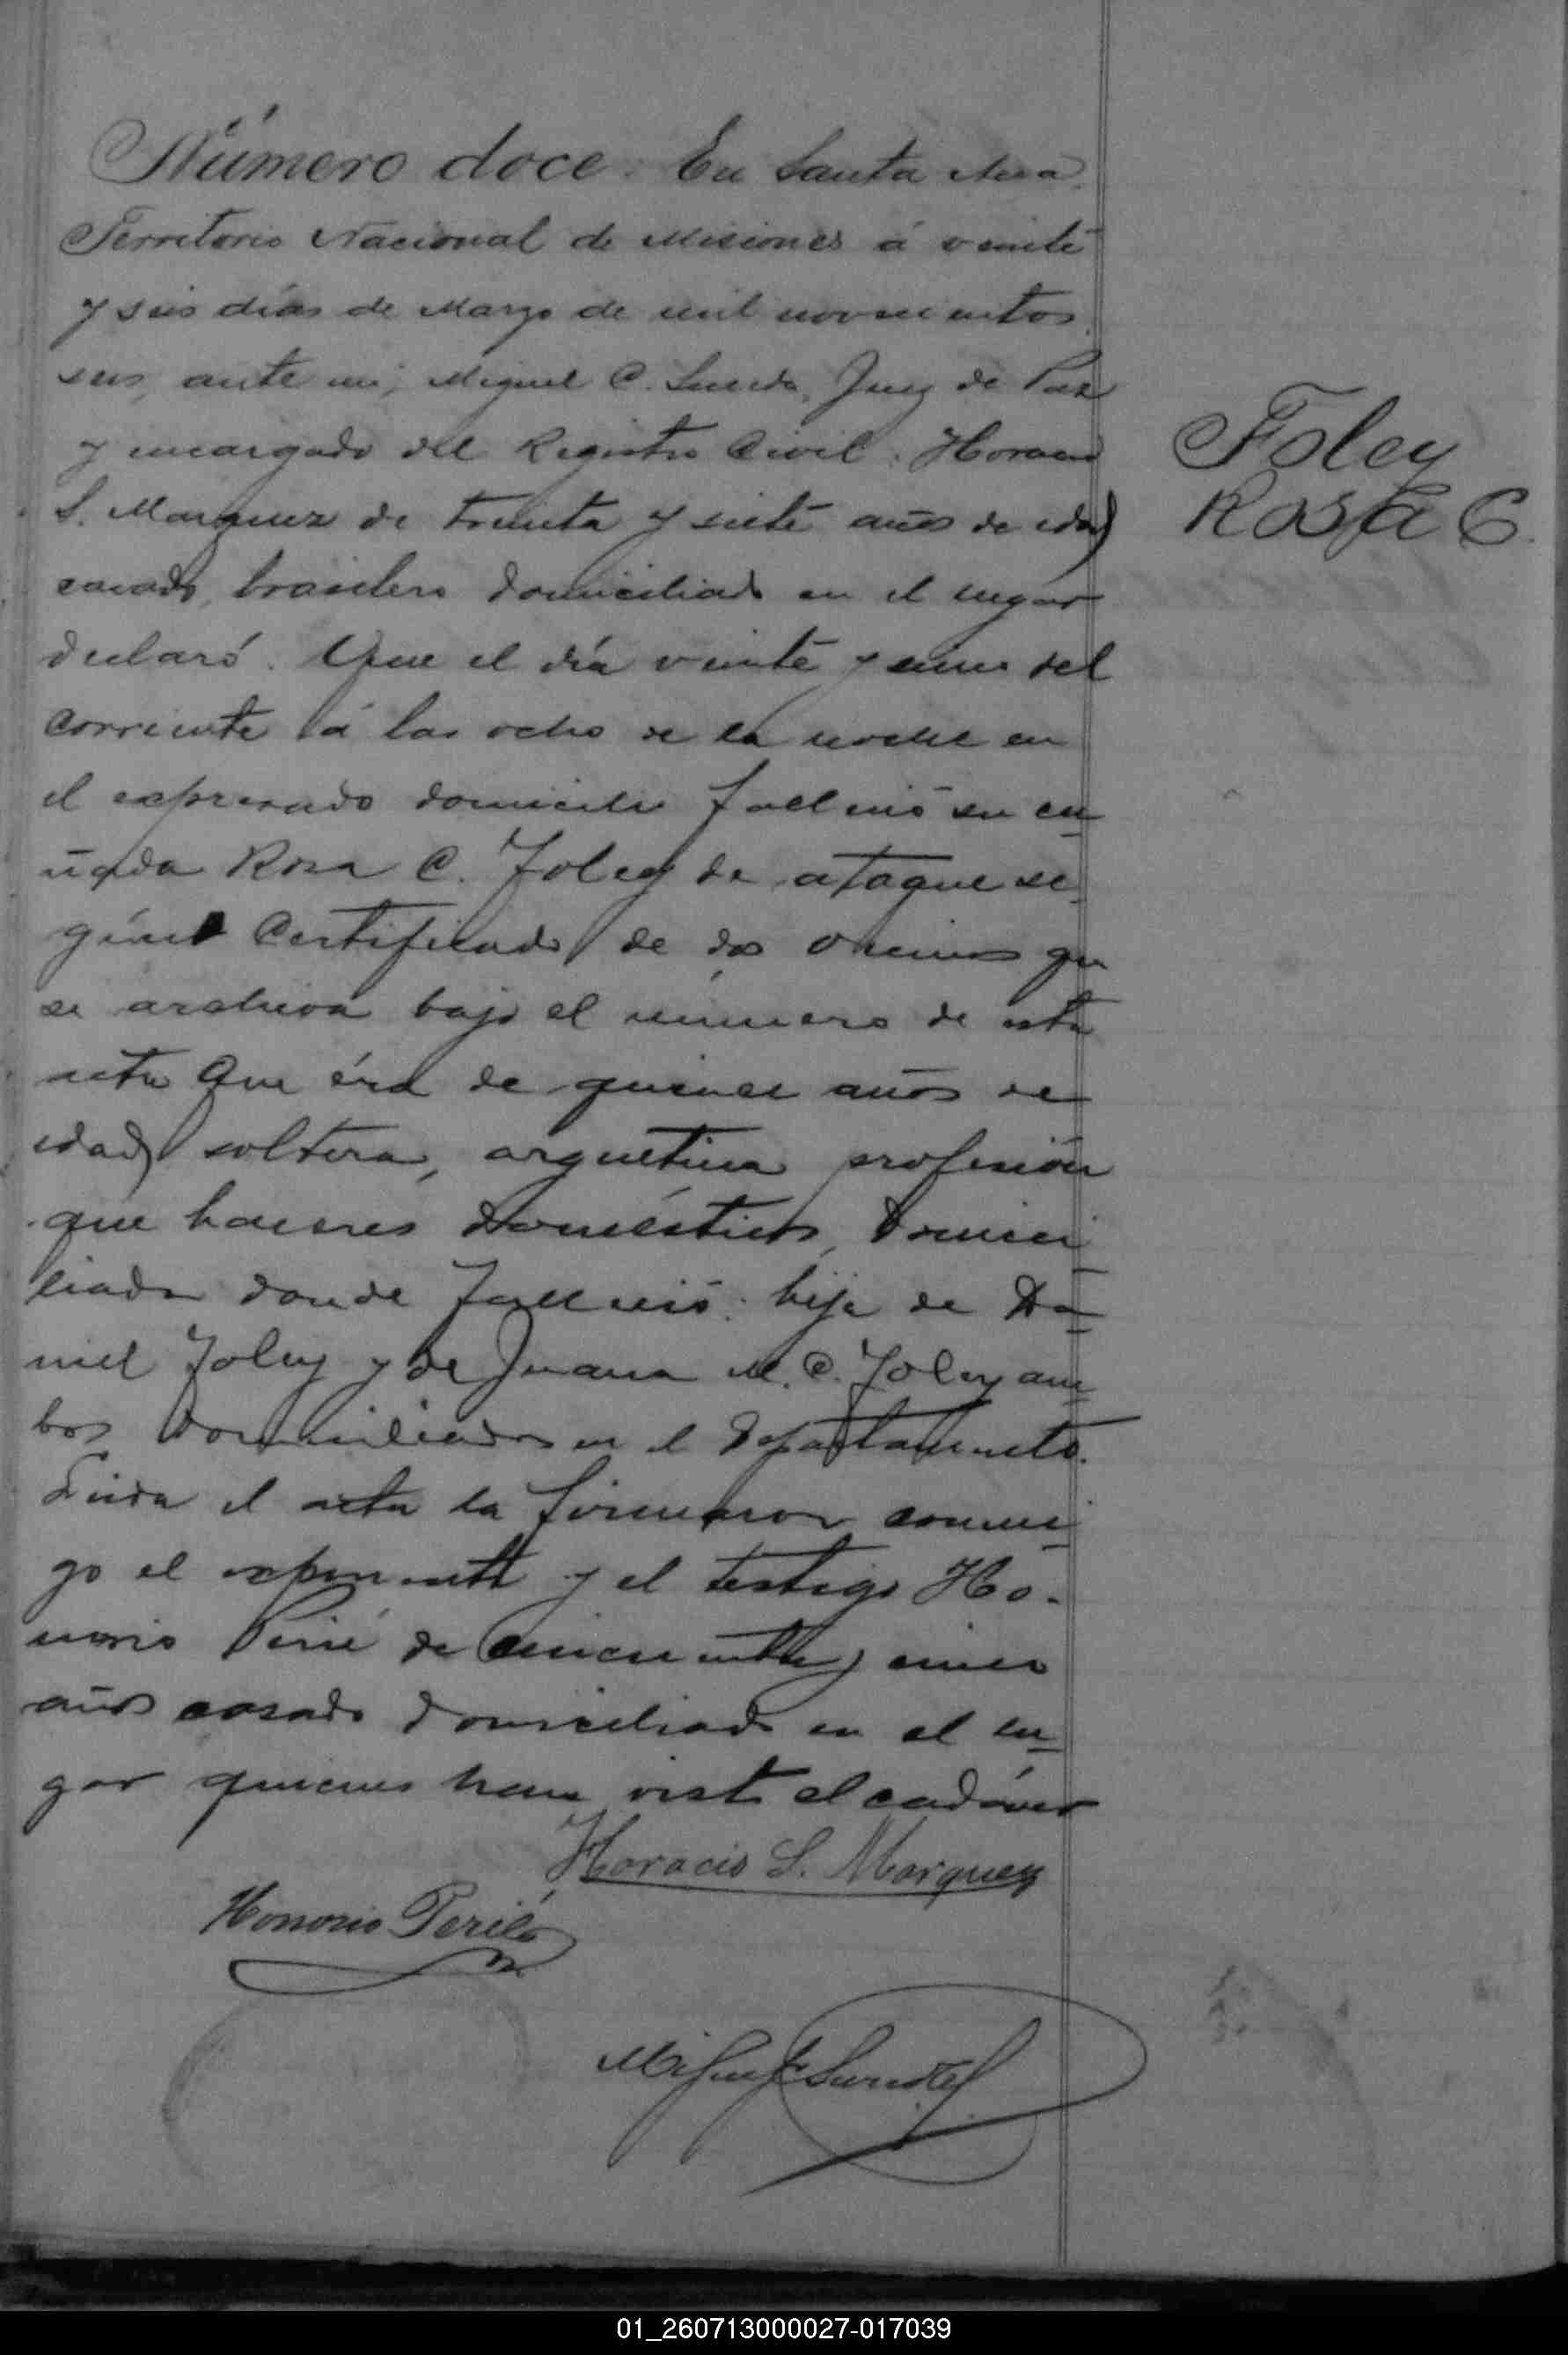 Número doce. En Santa Ana
Territorio Nacional de Misiones á veinte
y seis días de Marzo de mil novecientos
seis, ante mi, Miguel C. Juez de Paz
y encargado del Registro Civil. Horacio
S. Marquez de treinta y siete años de edad
casado, brasilero domiciliado en el lugar
declaró. Que el día veinte y cinco del
corriente á las ocho de la noche en
el expresado domicilio falleció su cu-
ñada Rosa C. Foley de ataque se-
gún certificado de dos vecinos que
se archiva bajo el número de esta
acta que éra de quince años de
edad, soltera, argentina profesión
que haceres domésticos, domici
liada donde falleció: hija de Da-
niel Foley y de Juana M. C. Foley am-
bos domiciliados en el Departamento.
Leida el acta la firmaron conmi-
go el exponente y el testigo Ho-
norio de cincuenta y cinco
años casado domiciliado en el lu-
gar quienes han visto el cadáver
Horacio S. Marquez
Honorio
Miguel C.
Foley
Rosa C.
01_260713000027-017039